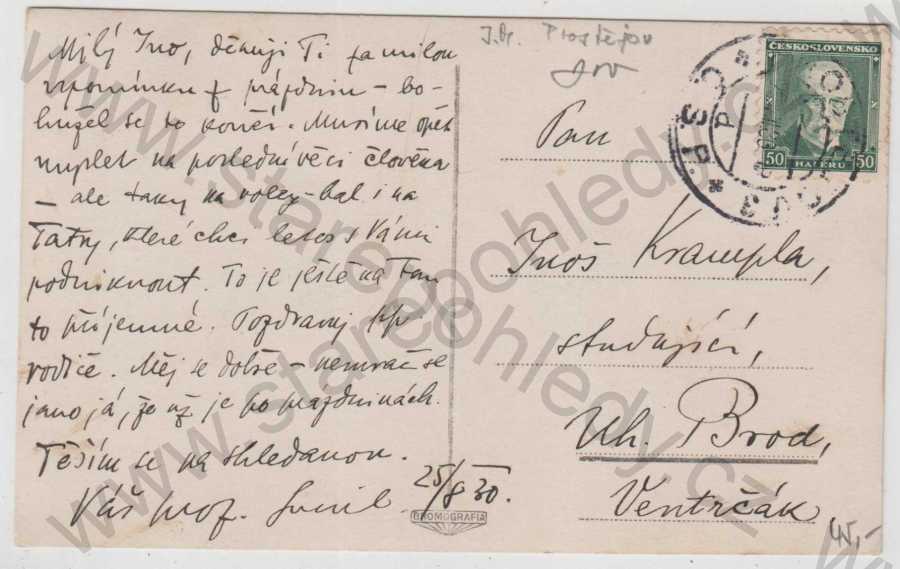 Milý Ino, děkuji Ti za milou
vzpomínku z prázdnin – bo-
hužel se to končí. Musíme opět
myslet na poslední věci člověka
– ale taky na voley-bal i na
Tatry, které chci letos s Vámi
podniknout. To je ještě na tom
to příjemné. Pozdravuj
rodiče. Měj se dobře – nemrač se
jako já, že už je po prazdninách.
Těším se na shledanou.
Váš prof.
25/8 30.
BROMOGRAFIA
Prostějov
ČESKOSLOVENSKO
50 HALÉRŮ 50
Pan
Inoš Krampla,
studující,
Uh. Brod,
Ventrčák
45,-
www.starepohledy.cz